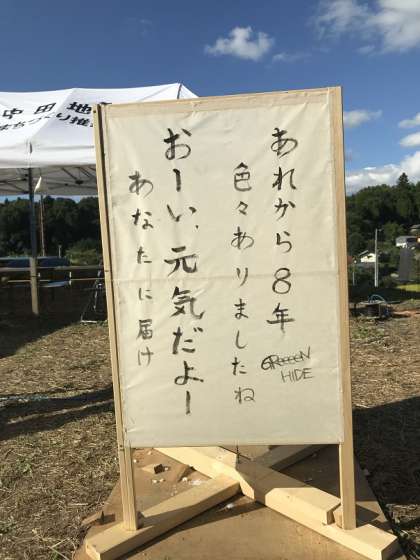 あれから8年
色々ありましたね
おーい、元気だよー
あなたに届け
GReeeeN
HIDE
中田地
まちづくり推